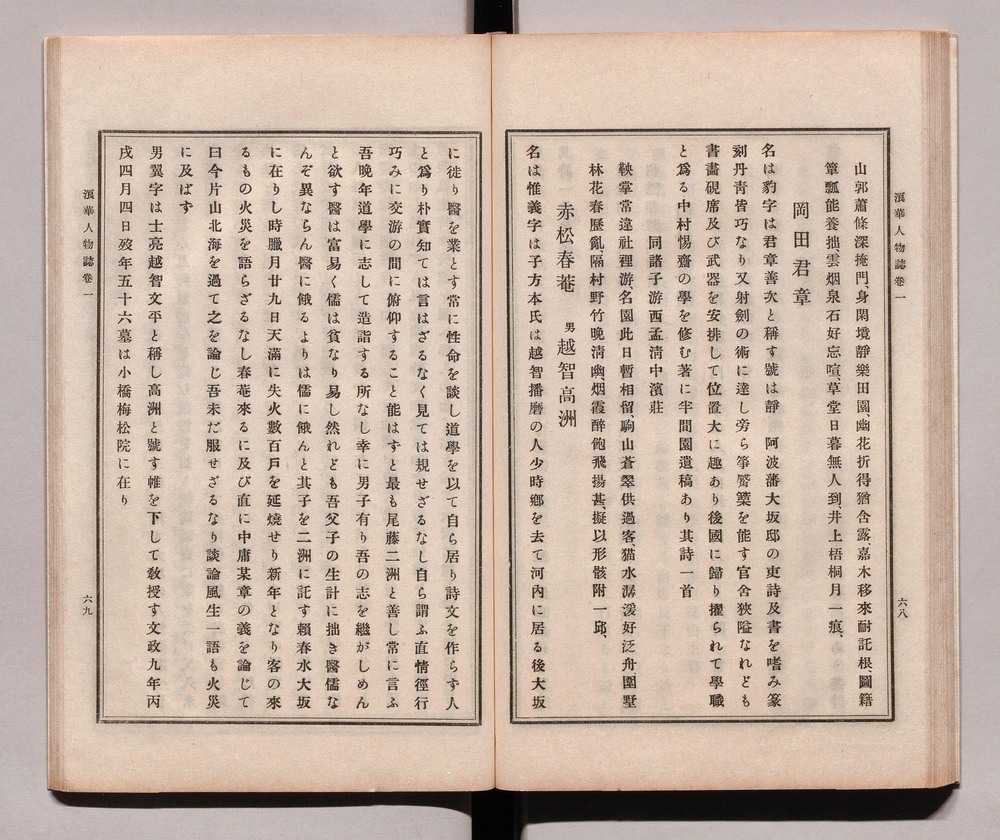 浪華人物誌卷一
六八
山郭蕭條深掩門、身閑境靜樂田園、幽花折得猶含露、嘉木移來耐託根、圖籍
簞瓢能養拙、雲烟泉石好忘喧、草堂日暮無人到、井上梧桐月一痕、
岡田君章
名は豹字は君章善次と稱す號は靜　阿波藩大坂邸の吏詩及書を嗜み篆
刻丹靑皆巧なり又射劍の術に達し旁ら箏觱篥を能す官舍狹隘なれども
書畵硯席及び武器を安排して位置大に趣あり後國に歸り擢られて學職
と爲る中村惕齋の學を修む著に半間園遺稿あり其詩一首
同諸子游西孟淸中濱莊
鞅掌常違社裡游、名園此日暫相留、駒山蒼翠供過客、猫水潺湲好泛舟、園墅
林花春歷亂、隔村野竹晩淸幽、烟霞醉飽飛揚甚、擬以形骸附一邱、
赤松春菴　男越智高洲
名は惟義字は子方本氏は越智播磨の人少時鄕を去て河內に居る後大坂
に徙り醫を業とす常に性命を談し道學を以て自ら居り詩文を作らす人
と爲り朴實知ては言はざるなく見ては規せざるなし自ら謂ふ直情徑行
巧みに交游の間に俯仰すること能はすと最も尾藤二洲と善し常に言ふ
吾晩年道學に志して造詣する所なし幸に男子有り吾の志を繼がしめん
と欲す醫は富易く儒は貧なり易し然れども吾父子の生計に拙き醫儒な
んぞ異ならん醫に餓るよりは儒に餓んと其子を二洲に託す賴春水大坂
に在りし時臘月廿九日天滿に失火數百戸を延燒せり新年となり客の來
るもの火災を語らざるなし春菴來るに及び直に中庸某章の義を論じて
曰今片山北海を過て之を論じ吾未だ服せざるなり談論風生一語も火災
に及ばず
男翼字は士亮越智文平と稱し高洲と號す帷を下して敎授す文政九年丙
戌四月四日歿年五十六墓は小橋梅松院に在り
浪華人物誌卷一
六九